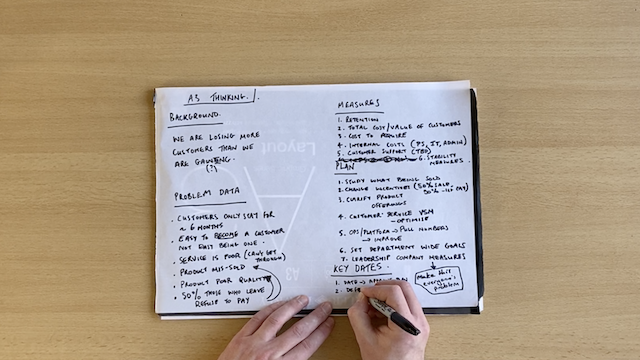 A3 THINKING.
BACKGROUND.
WE ARE LOSING MORE
CUSTOMERS THAN WE
ARE
(?)
PROBLEM DATA
• CUSTOMERS ONLY STAY FOR
~ 6 MONTHS
• EASY TO BECOME A CUSTOMER
NOT EASY BEING ONE.
• SERVICE IS POOR (CAN'T GET
THROUGH)
• PRODUCT MIS-SOLD
• PRODUCT POOR QUALITY
• 50% THOSE WHO LEAVE
REFUSE TO PAY
MEASURES
1. RETENTION
2. TOTAL COST/VALUE OF CUSTOMERS
3. COST TO ACQUIRE
4. INTERNAL COSTS (PS, IT, ADMIN)
5. CUSTOMER SUPPORT (TBD)
6. STABILITY
MEASURES.
PLAN
1. STUDY WHAT BEING SOLD
2. CHANGE INCENTIVES (50% SALE,
50%
3. CLARIFY PRODUCT
OFFERINGS
4. CUSTOMER SERVICE VSM
- OPTIMISE
5. OPS/PLATFORM → PULL NUMBERS
→ IMPROVE
6. SET DEPARTMENT WIDE GOALS
7. LEADERSHIP COMPANY MEASURES
Make this
everyone's
problem
KEY DATES.
1. DATA →
2.
Layout
A3